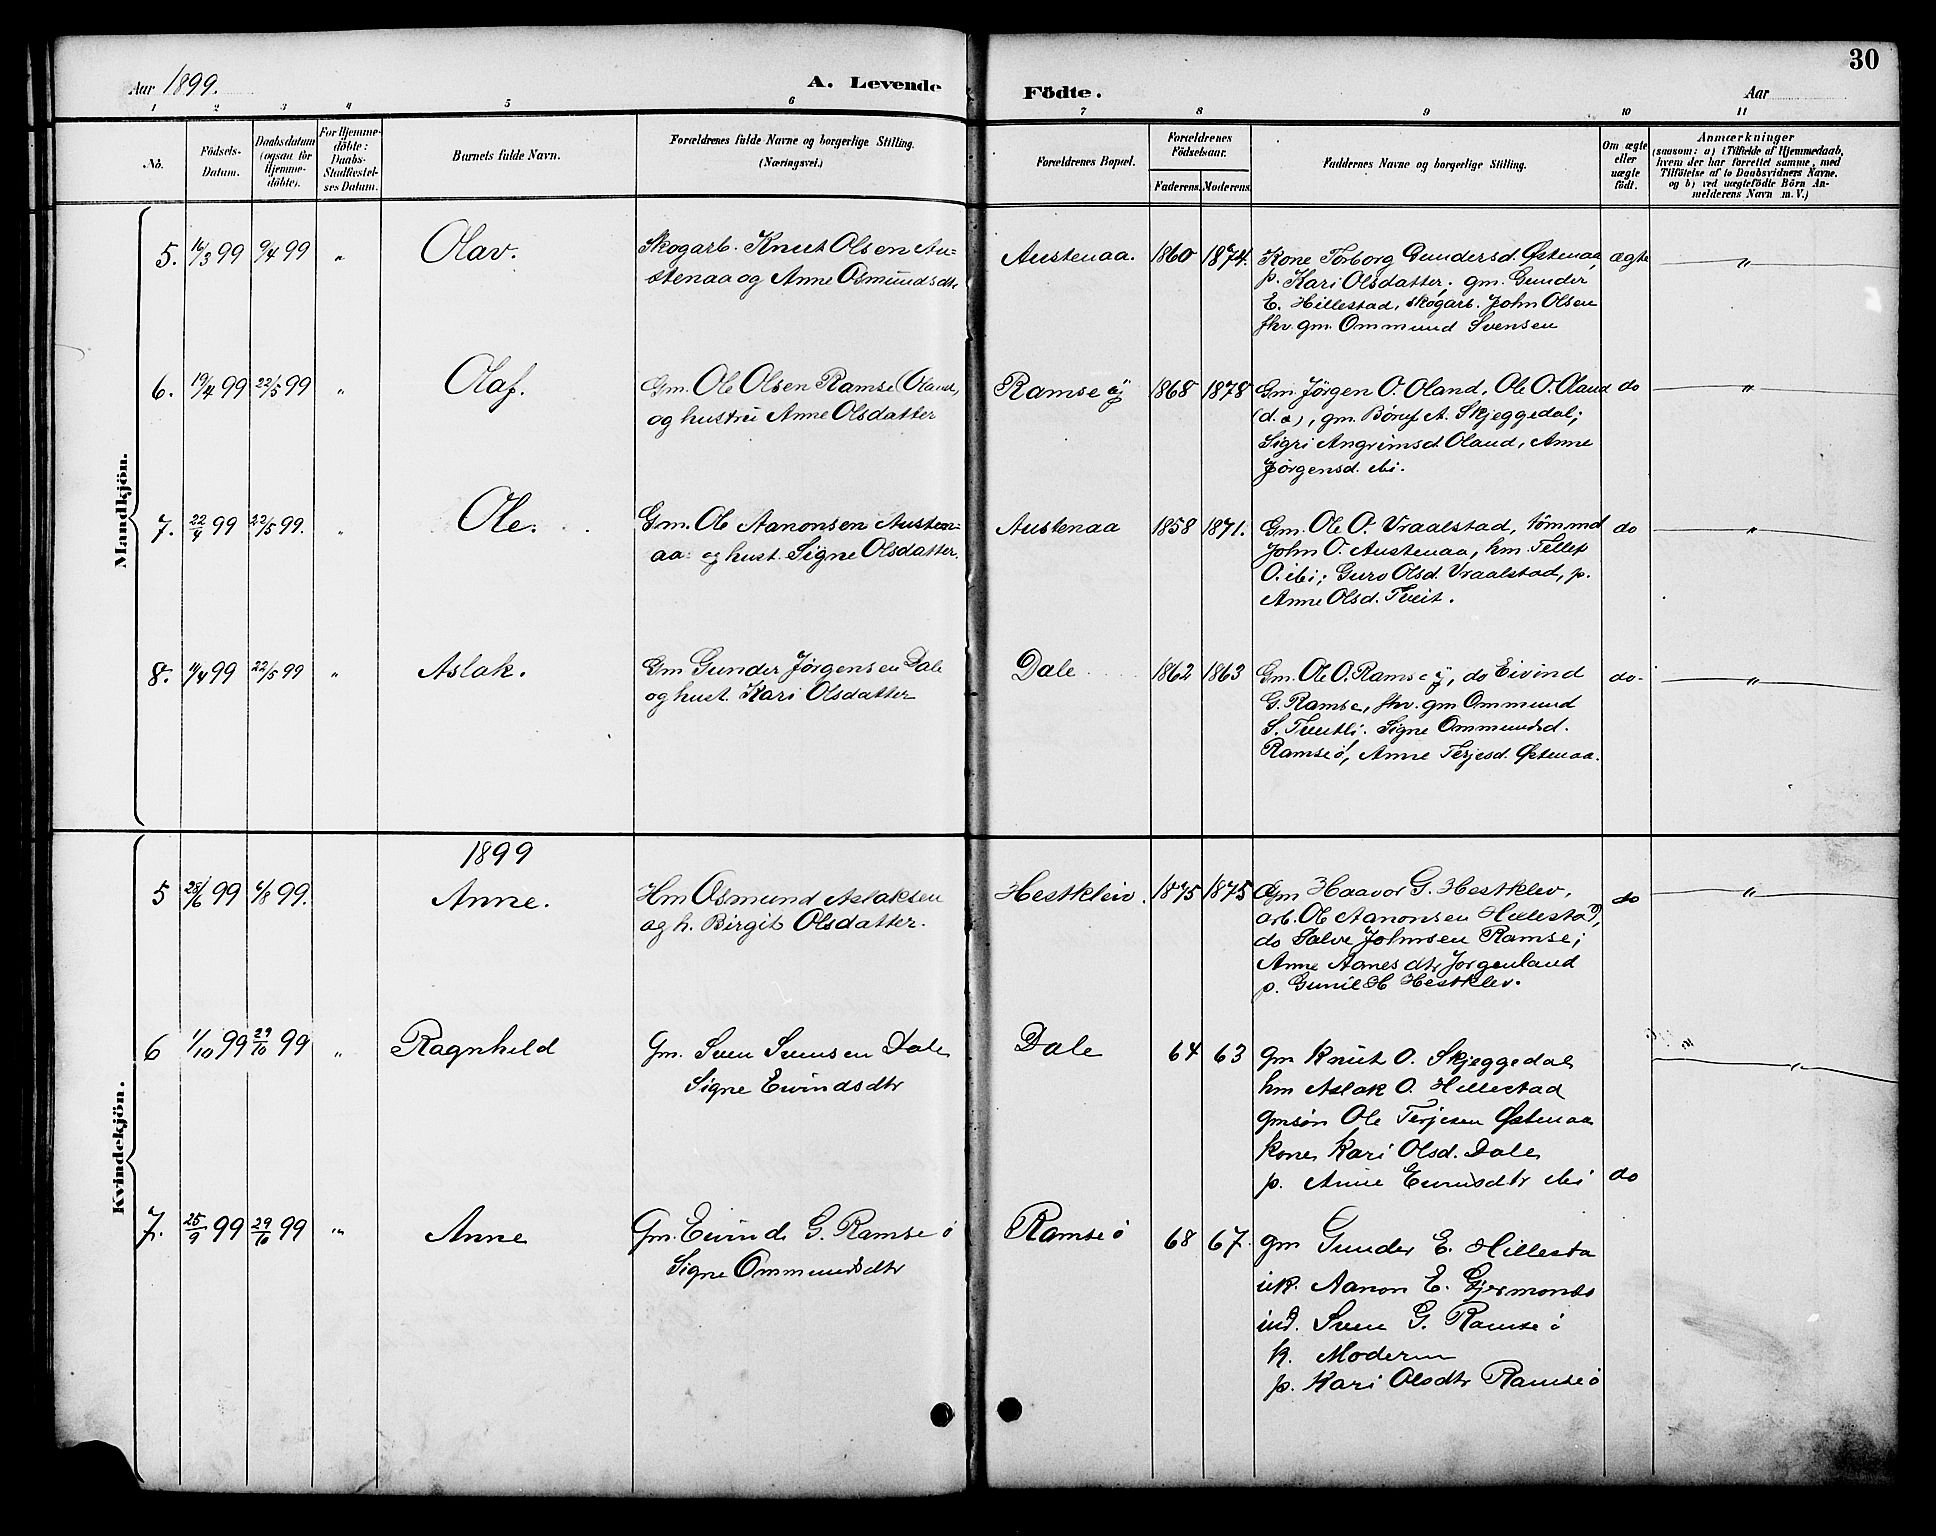 30
Aar 1899.
A. Levende Födte.
Aar
1 2 3 4 5 6 7 8 9 10 11
No.
Födsels-
Datum.
Daabsdatum
(ogsaa for
Hjemme-
döbte).
For Hjemme-
döbte:
Daabs-
Stadfæstel-
ses Datum.
Barnets fulde Navn.
Forældrenes fulde Navne og borgerlige Stilling.
(Næringsvei.)
Forældrenes Bopæl.
Forældrenes
Födselsaar.
Faderens. Moderens.
Faddernes Navne og borgerlige Stilling.
Om ægte
eller
uægte
födt.
Anmærkninger
(saasom: a) i Tilfælde af Hjemmedaab,
hvem der har forrettet samme, med
Tilföielse af to Daabsvidners Navne.
og b) ved uægtefödte Börn An-
melderens Navn m. V.)
Mandkjön.
5. 16/3 99 9/4 99 " Olav.
Skogarb. Knut Olsen Au-
stenaa og Anne Osmundsdtr
Austenaa. 1860 1874.
Kone Torborg Gundersd. Østenaa,
p. Kari Olsdatter; gm. Gunder
E. Hillestad, skogarb. John Olsen
fhv. gm. Ommund Svensen
ægte "
6. 19/4 99 22/5 99 " Olaf.
Gm. Ole Olsen Ramse (Oland,
og hustru Anne Olsdatter
Ramse ø 1868 1878
Gm. Jörgen O. Oland, Ole O. Oland
(d.æ), gm. Böruf A. Skjeggedal;
Sigri Angrimsd. Oland, Anne
Jörgensd. ibi.
do "
7. 22/4 99 22/5 99. " Ole.
Gm. Ole Aanonsen Austen-
aa: og hust. Signe Olsdatter.
Austenaa 1858 1871.
Gm. Ole O. Vraalstad, tömmd
John O. Austenaa, hm. Tellef
O. ibi; Guro Olsd. Vraalstad, p.
Anne Olsd. Tveit.
do "
8. 11/4 99 22/5 99 " Aslak.
Gm Gunder Jörgensen Dale
og hust. Kari Olsdatter
Dale 1862 1863
Gm. Ole O. Ramse ø, do Eivind
G. Ramse, fhv. gm Ommund
S. Tveitli. Signe Ommundsd.
Ramse ø, Anne Terjesd. Østenaa.
do. "
Kvindekjön.
1899
5 25/6 99 6/8 99. Anne.
Hm Osmund Aslaksen
og h. Birgit Olsdatter.
Hestkleiv. 1875 1875
Gm Haavor G. Hestklev,
arb. Ole Aanonsen Hillestad,
do Salve Johnsen Ramse;
Anne Aanesdtr Jorgenland
p. Gunil H Hestklev.
do "
6 1/10 99 29/10 99 " Ragnhild
Gm. Sven Svensen Dale
Signe Eivindsdtr
Dale 64 63
gm Knut O. Skjeggedal
hm Aslak O. Hillestad
gmsön Ole Terjesen Østenaa
kone Kari Olsd. Dale
p. Anne Eivindsdtr ibi
do "
7. 25/9 99 29/10 99 " Anne
Gm. Eivind G. Ramse ø
Signe Ommundsdtr
Ramse ø 68 67.
gm Gunder E. Hillesta
uk. Aanon E. Gjermondsø
ind. Sven G. Ramse ø
k. Moderen
p. Kari Olsdtr Ramse ø